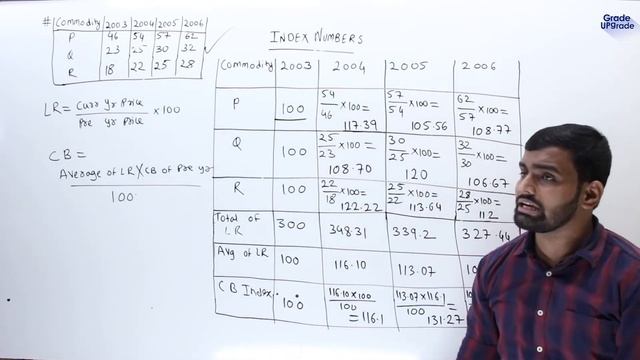 Grade
UPgrade
INDEX NUMBERS
# Commodity 2003 2004 2005 2006
P 46 54 57 62
Q 23 25 30 32
R 18 22 25 28
LR = Curr Yr Price / Pre Yr Price × 100
CB =
Average of LR × CB of Pre yr
100
Commodity 2003 2004 2005 2006
P 100 54/46 × 100 = 117.39 57/54 × 100 = 105.56 62/57 × 100 = 108.77
Q 100 25/23 × 100 = 108.70 30/25 × 100 = 120 32/30 × 100 = 106.67
R 100 22/18 × 100 = 122.22 25/22 × 100 = 113.64 28/25 × 100 = 112
Total of LR 300 348.31 339.2 327.44
Avg of LR 100 116.10 113.07
CB Index 100 116.10 × 100 / 100 = 116.1 113.07 × 116.1 / 100 = 131.27